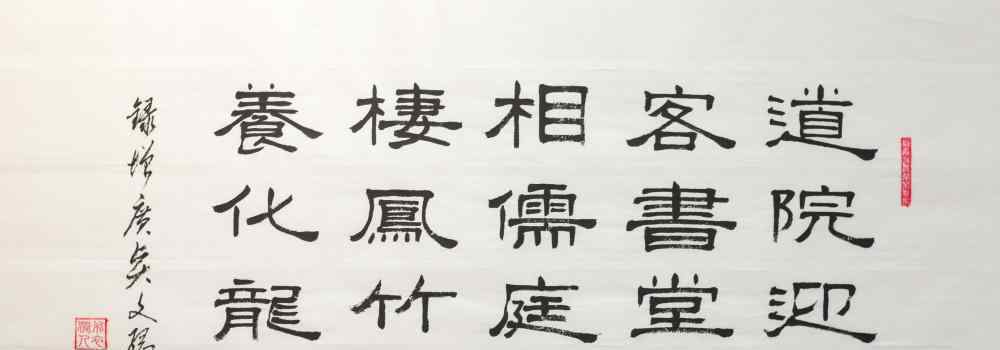 道院迎
客書堂
相儒庭
棲鳳竹
養化龍
録增廣矣文